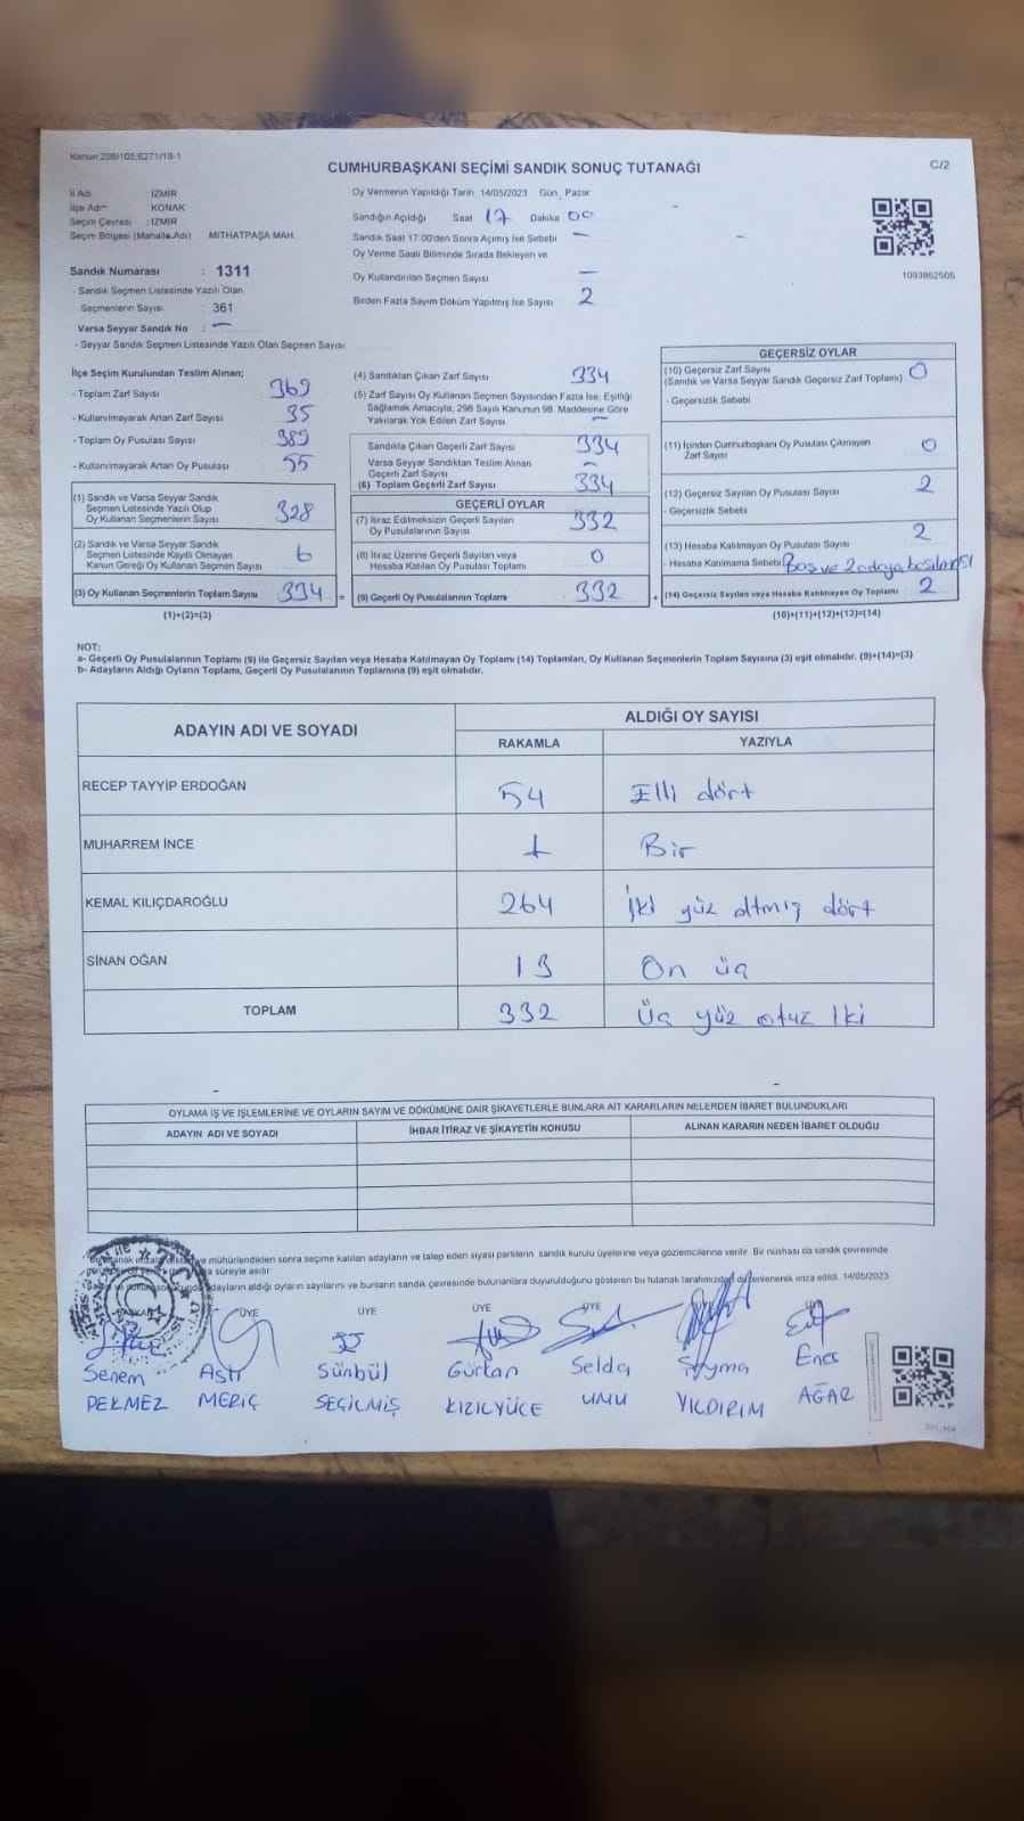 Kanun:298/105;6271/19-1
CUMHURBAŞKANI SEÇİMİ SANDIK SONUÇ TUTANAĞI
C/2
İl Adı : İZMİR
İlçe Adı : KONAK
Seçim Çevresi : İZMİR
Seçim Bölgesi (Mahalle Adı) MİTHATPAŞA MAH.
Sandık Numarası : 1311
- Sandık Seçmen Listesinde Yazılı Olan
Seçmenlerin Sayısı 361
Varsa Seyyar Sandık No : —
- Seyyar Sandık Seçmen Listesinde Yazılı Olan Seçmen Sayısı
Oy Vermenin Yapıldığı Tarih 14/05/2023 Gün Pazar
Sandığın Açıldığı Saat 17 Dakika 00
Sandık Saat 17:00'den Sonra Açılmış İse Sebebi —
Oy Verme Saati Bitiminde Sırada Bekleyen ve
Oy Kullandırılan Seçmen Sayısı —
Birden Fazla Sayım Döküm Yapılmış İse Sayısı 2
1093862506
İlçe Seçim Kurulundan Teslim Alınan;
- Toplam Zarf Sayısı 369
- Kullanılmayarak Artan Zarf Sayısı 35
- Toplam Oy Pusulası Sayısı 389
- Kullanılmayarak Artan Oy Pusulası 55
(1) Sandık ve Varsa Seyyar Sandık
Seçmen Listesinde Yazılı Olup
Oy Kullanan Seçmenlerin Sayısı 328
(2) Sandık ve Varsa Seyyar Sandık
Seçmen Listesinde Kayıtlı Olmayan
Kanun Gereği Oy Kullanan Seçmen Sayısı 6
(3) Oy Kullanan Seçmenlerin Toplam Sayısı 334 =
(1)+(2)=(3)
(4) Sandıktan Çıkan Zarf Sayısı 334
(5) Zarf Sayısı Oy Kullanan Seçmen Sayısından Fazla İse, Eşitliği
Sağlamak Amacıyla, 298 Sayılı Kanunun 98. Maddesine Göre
Yakılarak Yok Edilen Zarf Sayısı —
Sandıkta Çıkan Geçerli Zarf Sayısı 334
Varsa Seyyar Sandıktan Teslim Alınan
Geçerli Zarf Sayısı —
(6) Toplam Geçerli Zarf Sayısı 334
GEÇERLİ OYLAR
(7) İtiraz Edilmeksizin Geçerli Sayılan
Oy Pusulalarının Sayısı 332
(8) İtiraz Üzerine Geçerli Sayılan veya
Hesaba Katılan Oy Pusulası Toplamı 0
(9) Geçerli Oy Pusulalarının Toplamı 332 +
GEÇERSİZ OYLAR
(10) Geçersiz Zarf Sayısı
(Sandık ve Varsa Seyyar Sandık Geçersiz Zarf Toplamı) 0
- Geçersizlik Sebebi
(11) İçinden Cumhurbaşkanı Oy Pusulası Çıkmayan
Zarf Sayısı 0
(12) Geçersiz Sayılan Oy Pusulası Sayısı 2
- Geçersizlik Sebebi
(13) Hesaba Katılmayan Oy Pusulası Sayısı 2
- Hesaba Katılmama Sebebi Boş ve 2 adaya basılması
(14) Geçersiz Sayılan veya Hesaba Katılmayan Oy Toplamı 2
(10)+(11)+(12)+(13)=(14)
NOT:
a- Geçerli Oy Pusulalarının Toplamı (9) ile Geçersiz Sayılan veya Hesaba Katılmayan Oy Toplamı (14) Toplamları, Oy Kullanan Seçmenlerin Toplam Sayısına (3) eşit olmalıdır. (9)+(14)=(3)
b- Adayların Aldığı Oyların Toplamı, Geçerli Oy Pusulalarının Toplamına (9) eşit olmalıdır.
ADAYIN ADI VE SOYADI
ALDIĞI OY SAYISI
RAKAMLA YAZIYLA
RECEP TAYYİP ERDOĞAN 54 Elli dört
MUHARREM İNCE 1 Bir
KEMAL KILIÇDAROĞLU 264 İki yüz altmış dört
SİNAN OĞAN 13 On üç
TOPLAM 332 Üç yüz otuz iki
OYLAMA İŞ VE İŞLEMLERİNE VE OYLARIN SAYIM VE DÖKÜMÜNE DAİR ŞİKAYETLERLE BUNLARA AİT KARARLARIN NELERDEN İBARET BULUNDUKLARI
ADAYIN ADI VE SOYADI İHBAR İTİRAZ VE ŞİKAYETİN KONUSU ALINAN KARARIN NEDEN İBARET OLDUĞU
mühürlendikten sonra seçime katılan adayların ve talep eden siyasi partilerin sandık kurulu üyelerine veya gözlemcilerine verilir. Bir nüshası da sandık çevresinde
süreyle asılır.
adayların aldığı oyların sayılarını ve bunların sandık çevresinde bulunanlara duyurulduğunu gösteren bu tutanak tarafımızdan düzenlenerek imza edildi. 14/05/2023
BAŞKAN ÜYE ÜYE ÜYE ÜYE
Senem Aslı Sünbül Gürkan Selda Şeyma Enes
PEKMEZ MERİÇ SEÇİLMİŞ KIZILYÜCE UMU YILDIRIM AĞAR